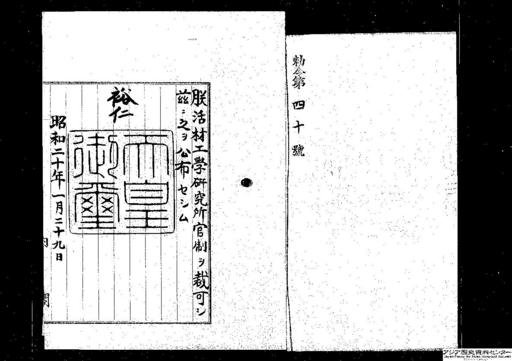 勅令第四十號
朕活材工學研究所官制ヲ裁可シ
茲ニ之ヲ公布セシム
裕仁
天皇御璽
昭和二十年一月二十九日
内閣
アジア歴史資料センター